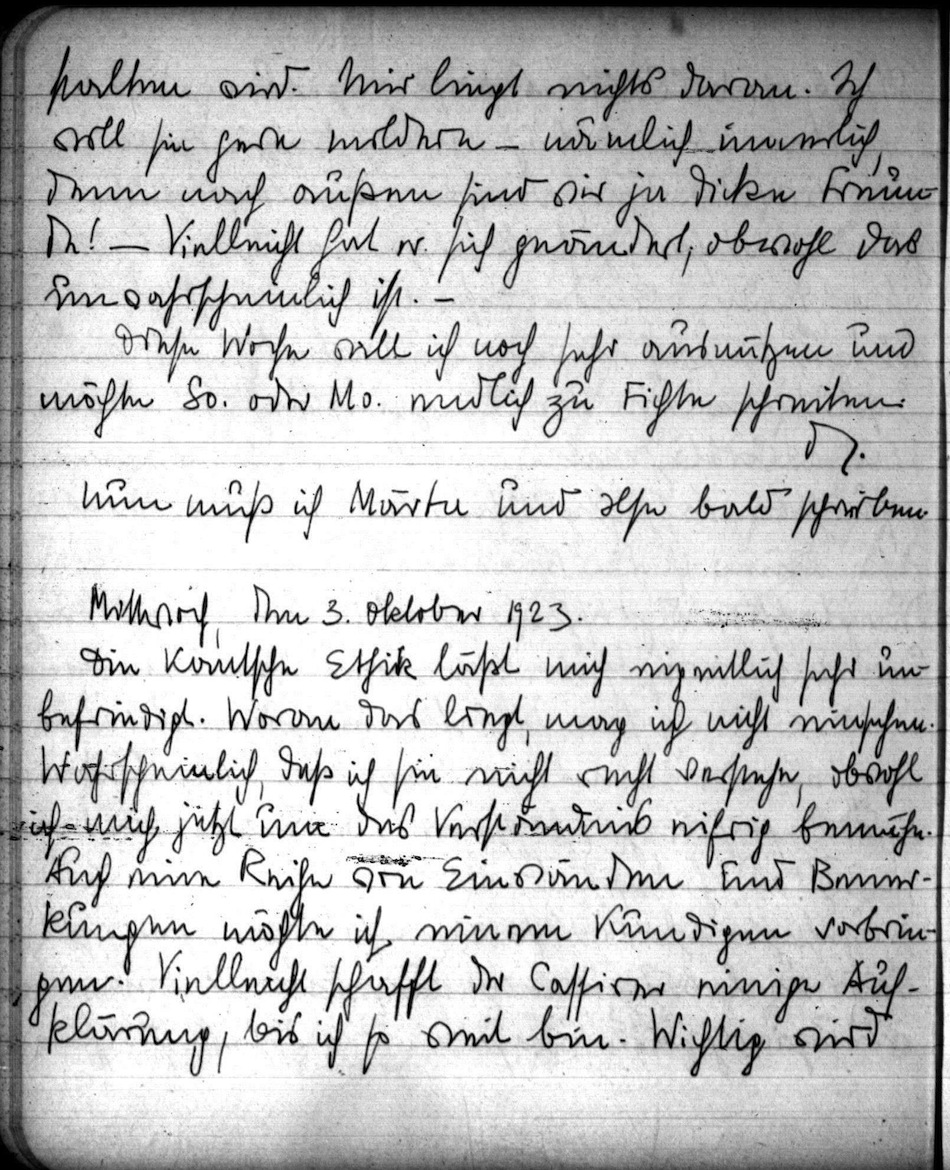 halten wird. Mir liegt nichts daran. Ich
will sie gern mildern – nämlich innerlich,
denn nach außen sind wir ja dicke Freun-
de! — Vielleicht hat er sich geändert, obwohl das
unwahrscheinlich ist. –
Diese Woche will ich noch sehr ausnutzen und
möchte So. oder Mo. endlich zu Fichte schreiten.
Nun muß ich Märte und Ilse bald schreiben
Mittwoch, den 3. Oktober 1923.
Die Kantsche Ethik läßt mich eigentlich sehr un-
befriedigt. Woran das liegt, mag ich nicht einsehen.
Wahrscheinlich, daß ich sie nicht recht verstehe, obwohl
ich mich jetzt um das Verständnis eifrig bemühe.
Auch eine Reihe von Einwänden und Bemer-
kungen möchte ich einem Kundigen vorbrin-
gen. Vielleicht schafft der Cassirer einige Auf-
klärung, bis ich so weit bin. Wichtig wird